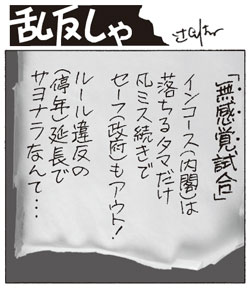 乱反しゃ
「無感覚試合」
インコース(内閣)は
落ちるタマだけ
凡ミス続きで
セーフ(政府)もアウト!
ルール違反の
(停年)延長で
サヨナラなんて・・・